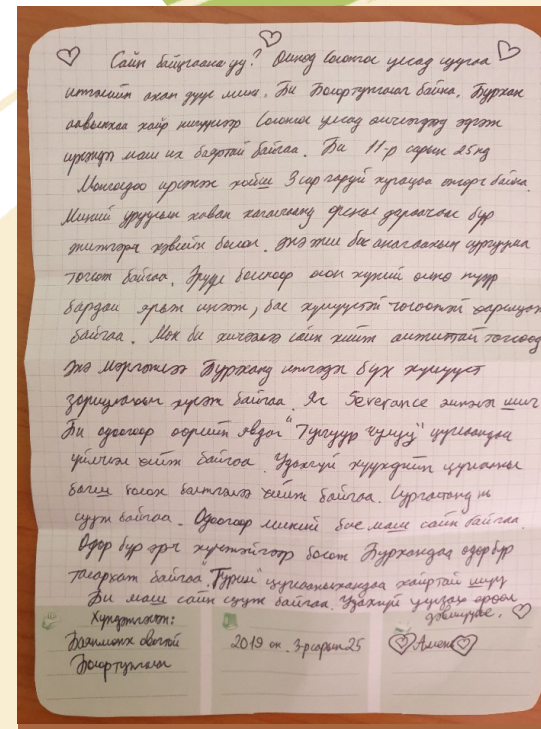 Сайн байцгаана уу? Өмнөд Солонгос улсад цуглаа
итгэлийн ахан дүүс минь. Би Болортунгалаг байна. Бурхан
аавынхаа хайр нигүүлсээр Солонгос улсад эмчлэгдээд эдгэж
ирэхдээ маш их баяртай байгаа. Би 11-р сарын 25нд
Монголдоо ирсэн хойш 3 сар гаруй хугацаа өнгөрч байна.
Миний уруулын хаван
жижгэрч хэвийн болсон. Энэ жил бас анагаахын сургууль
төгсөж байгаа. Эрүүл болсноор олон хүний өмнө нүүр
бардам ярьж инээж, бас хүмүүстэй тогоотой харилцаж
байгаа. Мөн би хичээлээ сайн хийж амжилттай төгсөөд
Энэ мэргэжлээ Бурханд итгэдэг бүх хүмүүст
зориулахыг хүсэж байгаа. Яг Severance эмнэлэг шиг
Би одоогоор өөрийн явдаг "Тулгуур чулуу" цуглаандаа
үйлчлэл хийж байгаа. Удахгүй хүүхдийн цугларааны
багш болох бэлтгэлээ хийж байгаа. Сургалтанд нь
сууж байгаа. Одоогоор миний бие маш сайн байгаа.
Өдөр бүр эрч хүчтэйгээр босож Бурхандаа өдөр бүр
талархаж байгаа. цуглааныхандаа хайртай шүү
Би маш сайн сууж байгаа. Удахгүй уулзах ерөөл
дэвшүүлье.
Хүндэтгэсэн:
Баянмөнх овогтой
Болортунгалаг
2019 он. 3-р сарын 25
Амен